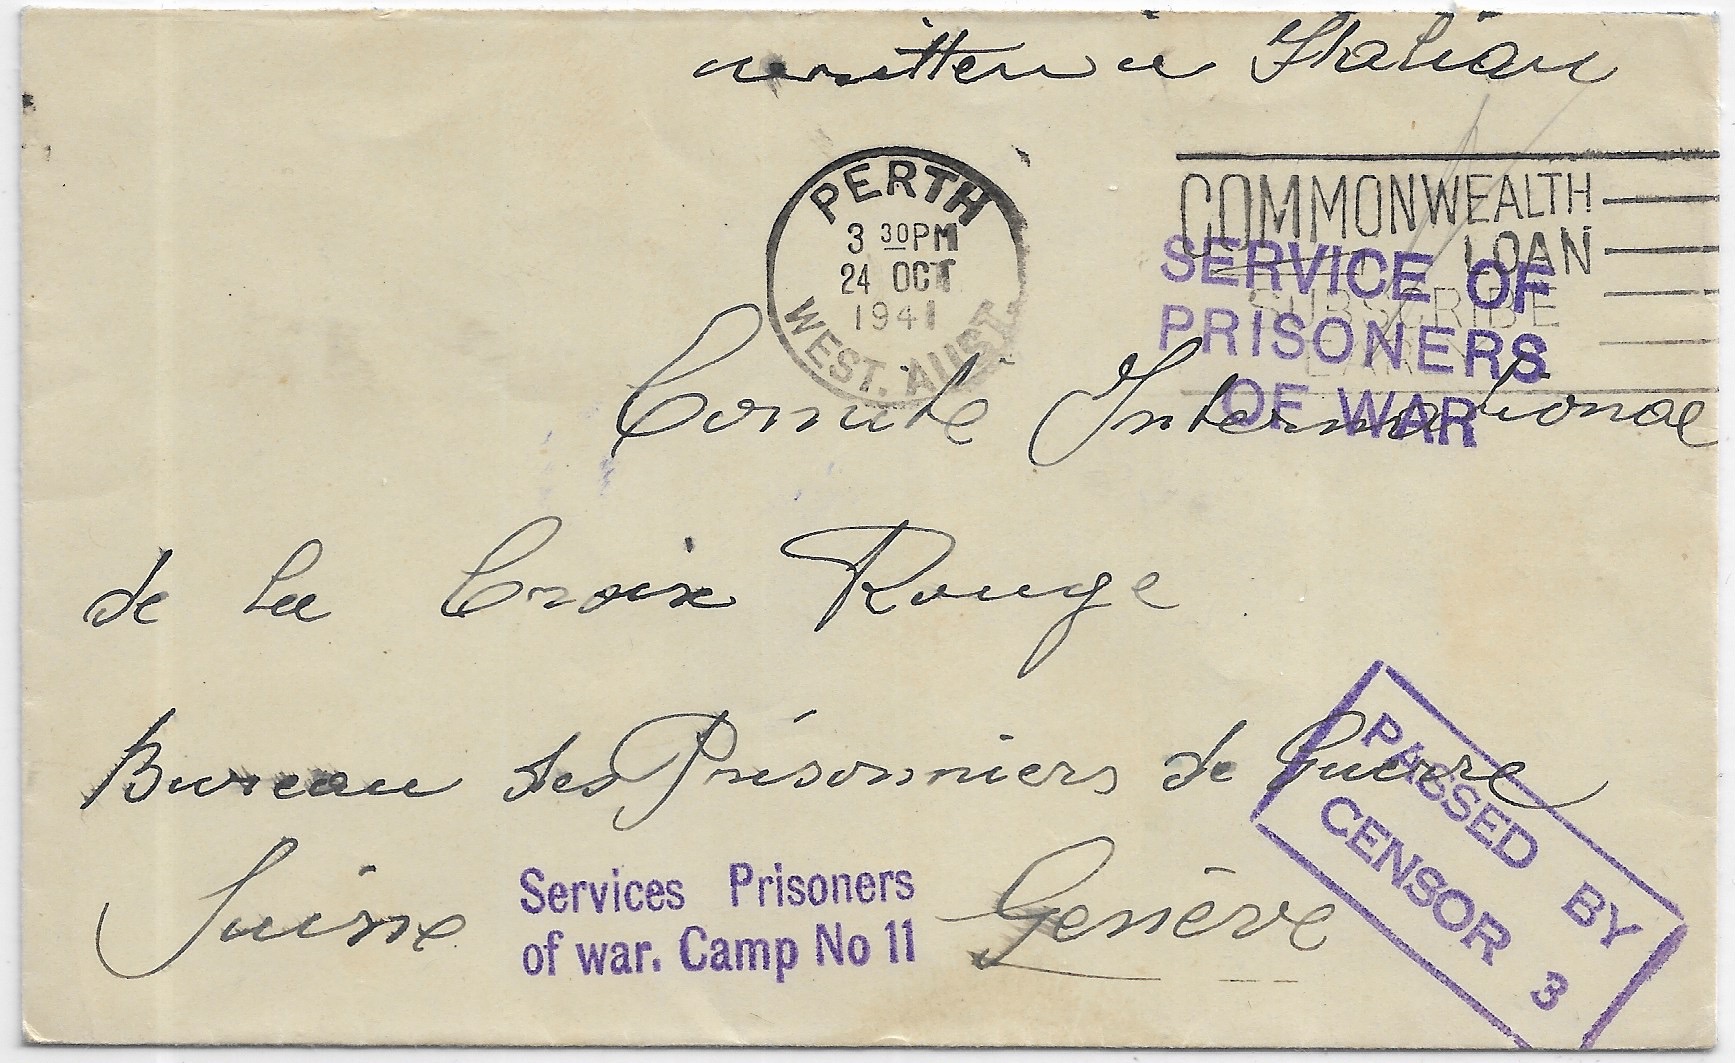 written in Italian
PERTH
3 30PM
24 OCT
1941
WEST. AUST.
COMMONWEALTH
LOAN
SUBSCRIBE
SERVICE OF
PRISONERS
OF WAR
Comité International
de la Croix Rouge
Bureau des Prisonniers de Guerre
Suisse Genève
Services Prisoners
of war. Camp No 11
PASSED BY
CENSOR 3